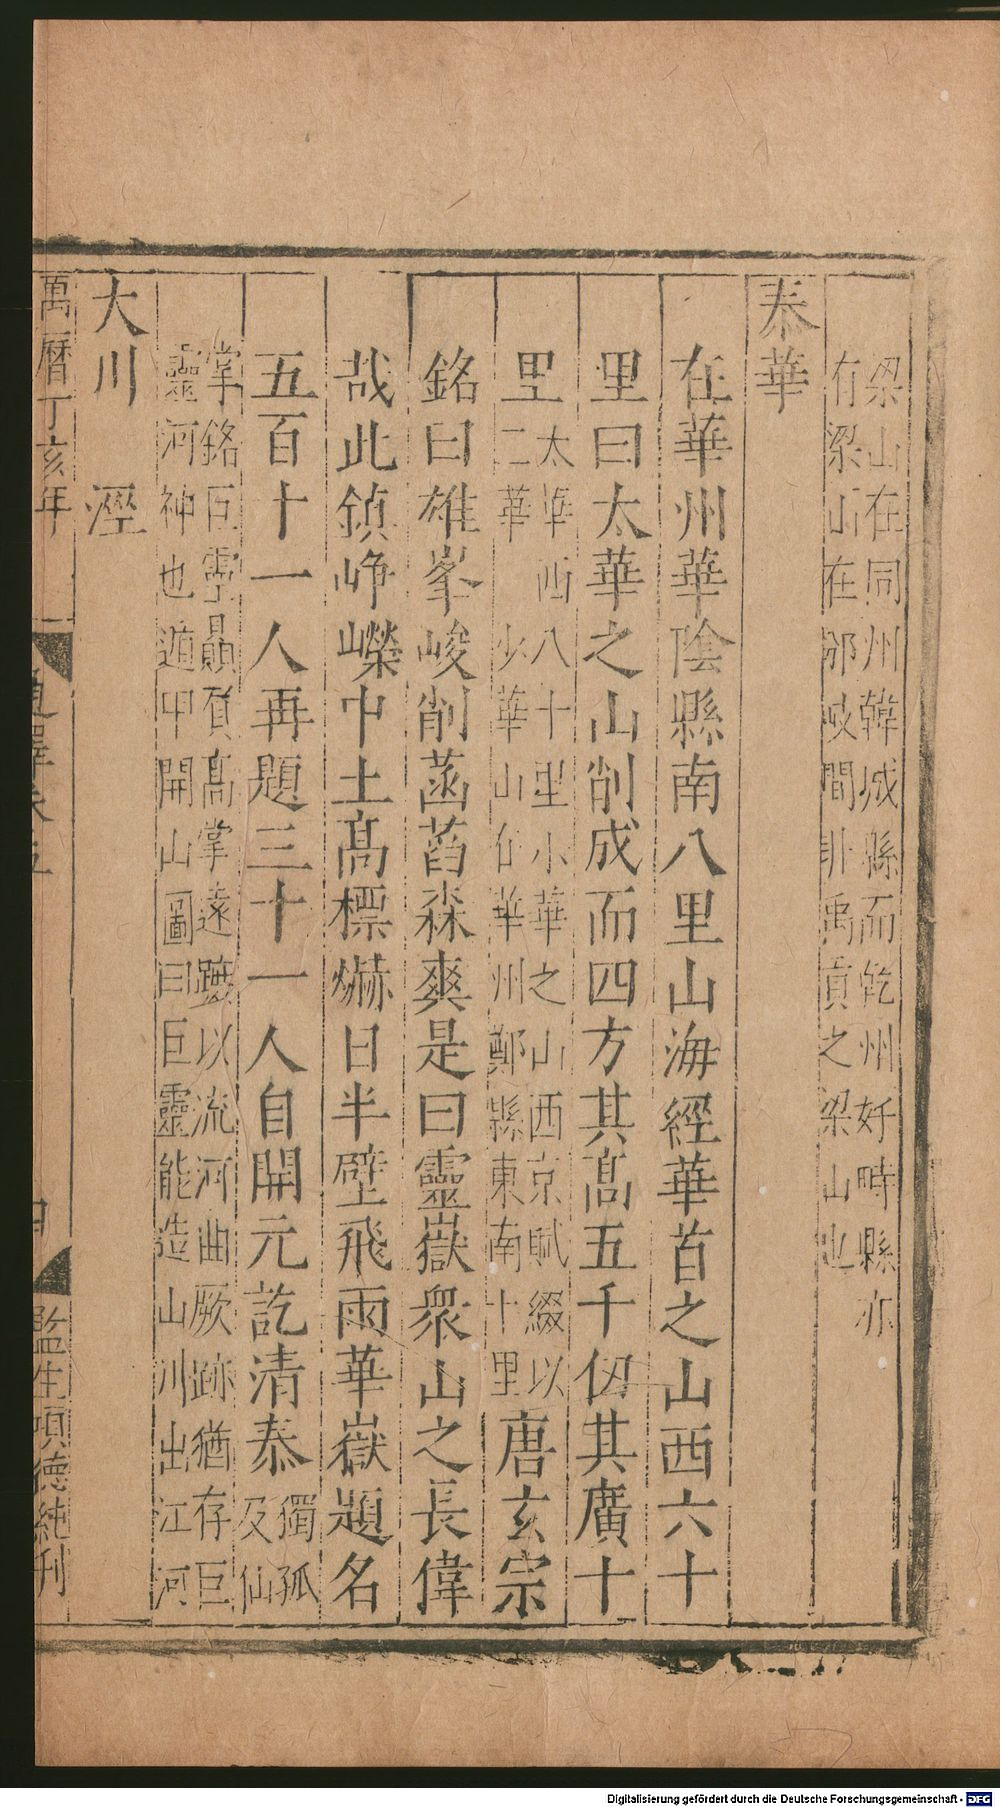 梁山在同州韓城縣而乾州好時縣亦
有梁山在邠岐間非禹貢之梁山也
泰華
在華州華陰縣南八里山海經華首之山西六十
里曰太華之山削成而四方其高五千仞其廣十
里太華西八十里小華之山西京賦綴以
二華少華山在華州鄭縣東南十里唐玄宗
銘曰雄峯峻削菡萏森爽是曰靈嶽衆山之長偉
哉此鎮崢嶸中土高標爀日半壁飛雨華嶽題名
五百十一人再題三十一人自開元訖清泰獨孤
及仙
掌銘巨靈贔屓高掌遠蹠以流河曲厥跡猶存巨
靈河神也遁甲開山圖曰巨靈能造山川出江河
大川 溼
萬曆丁亥年 通釋卷五 四 監生項德純刊
Digitalisierung gefördert durch die Deutsche Forschungsgemeinschaft - DFG